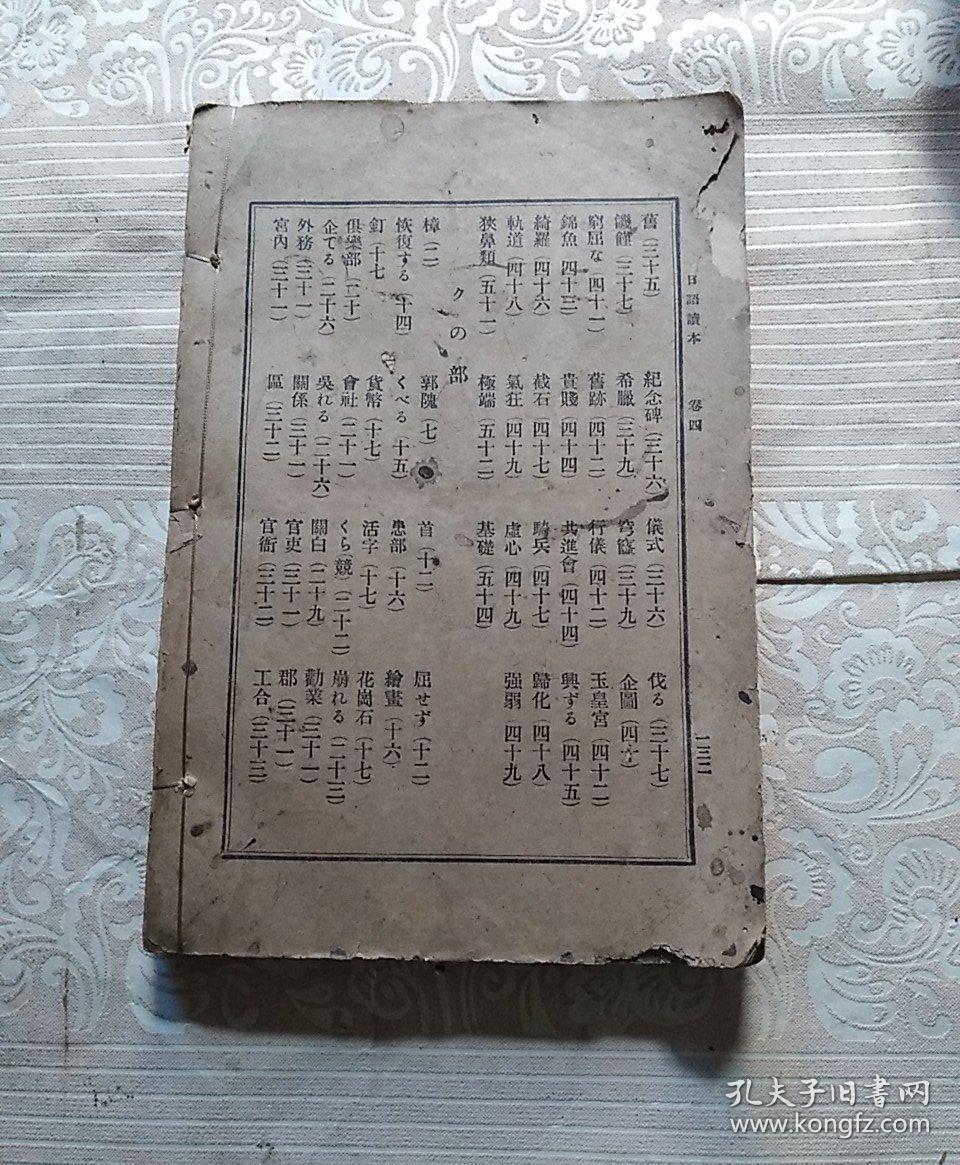 日語讀本 卷四 一三二
舊(三十五) 紀念碑(三十六) 儀式(三十六) 伐る(三十七)
饑饉(三十七) 希臘(三十九) 穹窿(三十九) 企圖(四十)
窮屈な(四十一) 舊跡(四十二) 行儀(四十二) 玉皇宮(四十二)
錦魚(四十三) 貴賤(四十四) 共進會(四十四) 興ずる(四十五)
綺羅(四十六) 截石(四十七) 騎兵(四十七) 歸化(四十八)
軌道(四十八) 氣狂(四十九) 虛心(四十九) 强弱(四十九)
狹鼻類(五十一) 極端(五十二) 基礎(五十四)
クの部
樟(二) 郭隗(七) 首(十二) 屈せず(十二)
恢復する(十四) くべる(十五) 患部(十六) 繪畫(十六)
釘(十七) 貨幣(十七) 活字(十七) 花崗石(十七)
俱樂部(二十) 會社(二十一) くら競(二十二) 崩れる(二十三)
企てる(二十六) 吳れる(二十六) 關白(二十九) 勸業(三十一)
外務(三十一) 關係(三十一) 官吏(三十一) 郡(三十一)
宮內(三十一) 區(三十二) 官衙(三十二) 工合(三十三)
孔夫子旧书网
www.kongfz.com